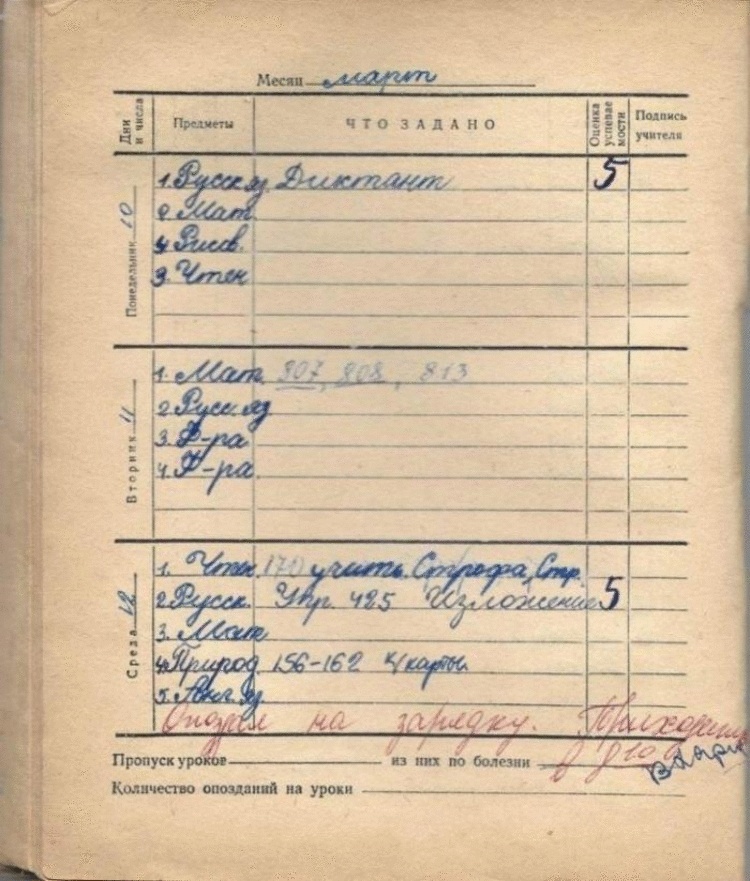 Месяц март
Дни и числа Предметы ЧТО ЗАДАНО Оценка успевае мости Подпись учителя
Понедельник 10
1. Русск яз. Диктант 5
2 Мат.
4 Рисов.
3. Чтен
Вторник 11
1. Мат. 807, 808, 813
2 Русс. яз
3. Ф-ра
4. Ф-ра
Среда 12
1. Чтен. 170 учить. Строфа, Стр.
2 Русск. Упр. 425 Изложение 5
3. Мат
4. Природ. 156-162 К/карты.
5. Анг. яз.
Опоздал на зарядку. Приходить
Пропуск уроков из них по болезни в 8
Количество опозданий на уроки